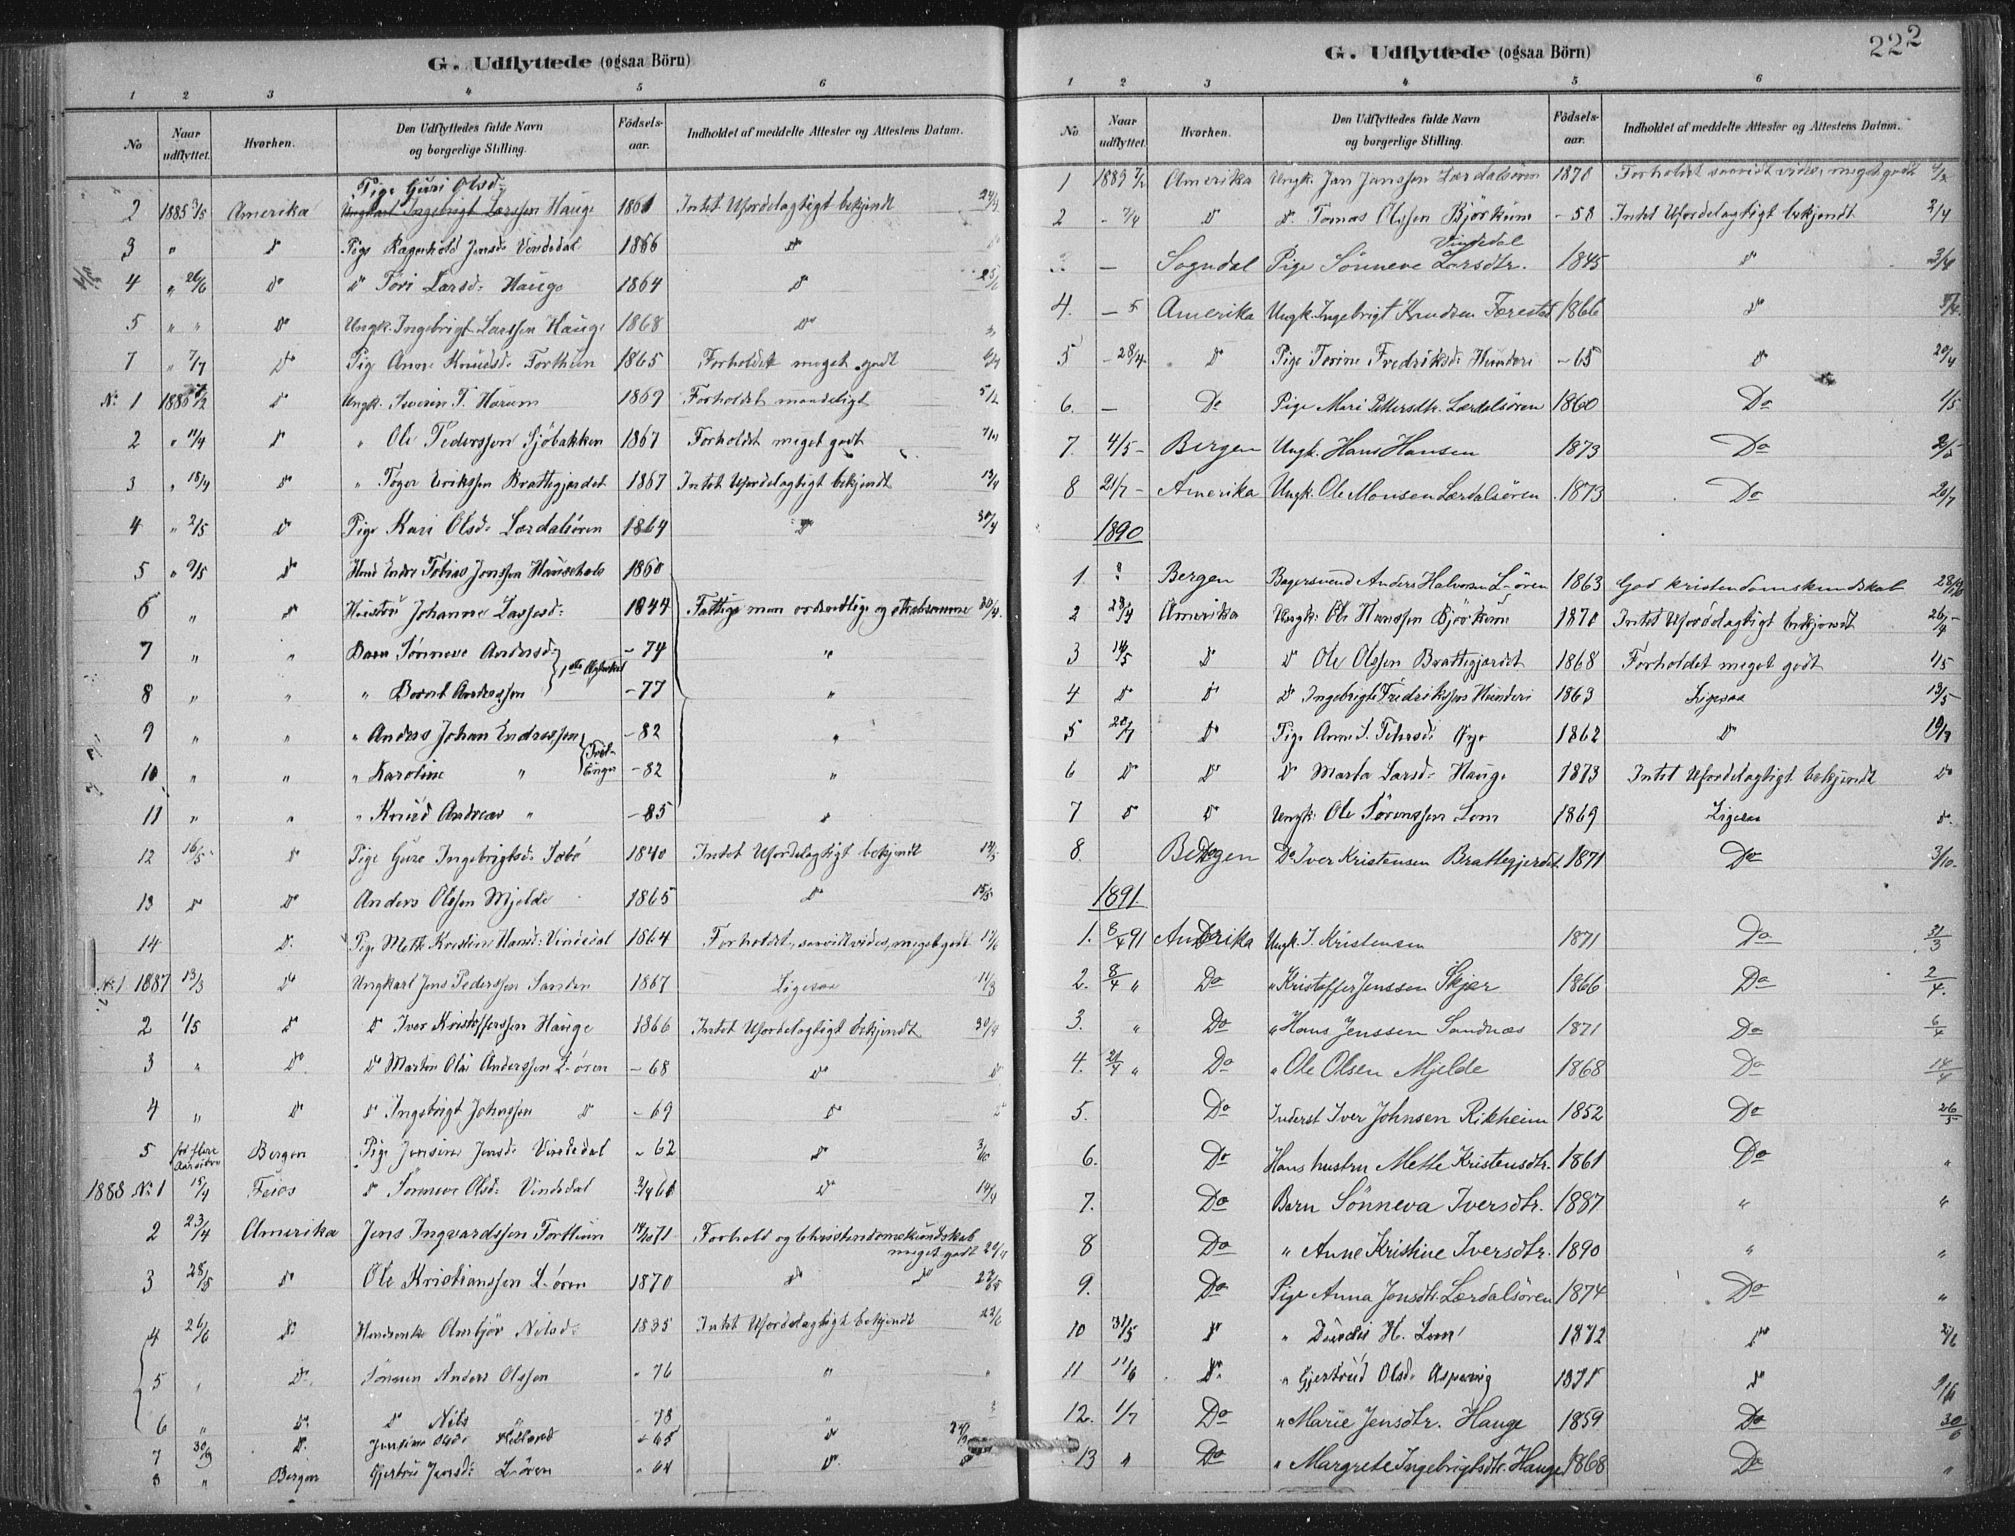 G. Udflyttede (ogsaa Börn)
1 2 3 4 5 6
No Naar udflyttet. Hvorhen. Den Udflyttedes fulde Navn og borgerlige Stilling. Födsels-aar. Indholdet af meddelte Attester og Attestens Datum.
Pige Guri Olsd:
2 1885 Amerika Ungkarl Ingebrigt Larssen Hauge 1861 Intet Ufordelagtigt bekjendt
3 " Do Pige Ragnhild Jensd: Vindedal 1866 Do
4 " 26/6 Do Do Töri Larsd: Hauge 1864 Do
5 " " Do Ungk. Ingebrigt Larssen Hauge 1868 Do "
7 " 7/7 Do Pige Anne Knudsd: Forthun 1865 Forholdet meget godt
No 1 Do Ungk. Severin T. Horum 1869 Forholdet maadeligt 5/2
2 " 11/4 Do " Ole Pederssen Sjöbakken 1867 Forholdet meget godt
3 " 18/4 Do " Töger Erikssen Brattegjerdet 1867 Intet Ufordelagtigt bekjendt 13/4
4 " 2/5 Do Pige Kari Olsd: Lærdalsören 1864 Do 30/4
5 " 9/5 Do Endre Tobias Jonssen 1860
6 " Do Hustru Johanne Lassesd: 1844 Fattige men ordentlige og strebsomme 30/4.
7 " " Barn Sönneve Andersd: 1ste Ægteskab - 74 "
8 " " " Bernt Anderssen - 77 "
9 " " " Anders Johan Endressen - 82 "
10 " " " Karoline " Tvillinger - 82 "
11 " " " Knud Andreas " - 85 "
12 16/5 Do Pige Guro Ingebrigtsd: Sæbö 1840 Intet Ufordelagtigt bekjendt 14/5
13 Do Do Anders Olssen Mjelde 1865 Do 15/5
14 Do Pige Mette Kristine Hansd: Vindedal 1864 Forholdet, saavidt vides, meget godt
No 1 1887 13/3 Do Ungkarl Jens Pederssen Sanden 1867 Ligesaa 11/3
2 1/5 Do Do Iver Kristofferssen Hauge 1866 Intet Ufordelagtigt bekjendt 30/4
3 " Do Do Martin Olai Anderssen L-ören - 68 Do Do
4 " Do Do Ingebrigt Johnssen Do - 69 Do Do
5 for flere Aar siden Bergen Pige Jensine Jensd: Vindedal - 62 Do
1888 No 1 15/4 Feios Do Sönneve Olsd: Vindedal Do 14/4
2 23/4 Amerika Jens Ingvardssen Forthun Forhold og Christendomskundskab meget godt
3 28/5 Do Ole Kristianssen L-ören 1870 Do Do
4 26/6 Do Olmbjör Nilsd: 1835 Intet Ufordelagtigt bekjendt 23/6
5 " Do. Sönnen Anders Olssen " 76 " "
6 " Do. Do Nils - 78 "
7 30/9 Do. Jensine Olsd: - 65 Do
8 " Bergen Gjertru Jensd: L-ören " 64 Do
222
G. Udflyttede (ogsaa Börn)
1 2 3 4 5 6
No Naar udflyttet. Hvorhen. Den Udflyttedes fulde Navn og borgerlige Stilling. Födsels-aar. Indholdet af meddelte Attester og Attestens Datum.
1 1889 Amerika Ungk. Jan Janssen Lærdalsören 1870 Forholdet saavidt vides, meget godt
2 - 7/4 Do Do. Tomas Olssen Björkum - 58 Intet Ufordelagtigt bekjendt 2/4
Vindedal
- Sogndal Pige Sönneve Larsdtr. 1845 Do 3/4
4. - 5 Amerika Ungk. Ingebrigt Knudsen Færestad 1866 Do
5 - 28/4 Do Pige Torine Fredriksd: Hunderi - 65 Do 20/4
6. - Do Pige Mari Pettersdtr. Lærdalsören 1860 Do 1/5
7. 4/5 - Bergen Ungk. Hans Hansen 1873 Do 2/5
8 21/7 - Amerika Ungk. Ole Monsen Lærdalsören 1873 Do 20/7
1890
1. ? Bergen Bagersvend Anders Halvorsen L-ören 1863 God kristendomskundskab
2 Amerika Ungk. Ole Hanssen Björkum 1870 Intet Ufordelagtigt bekjendt 26/4
3 14/5 Do Do Ole Olssen Brattegjerdet 1868 Forholdet meget godt 1/5
4 Do Do Do Ingebrigt Fredrikssen Hunderi 1863 Ligesaa 13/5
5 Do Pige Anne 1862 Do
6 Do Do Do Marta Larsd: Hauge 1873 Intet Ufordelagtigt bekjendt Do
7 Do Do Ungk: Ole Sörenssen Lom 1869 Ligesaa Do.
8. Bergen Do Iver Kristensen Brattegjerdet 1871 Do 3/10.
1891
1. 8/4 91 Amerika Ungk. J. Kristensen 1871 Do 31/3
2. 8/4 " Do " Kristoffer Jenssen Skjær 1866 Do 2/4.
3. " Do " Hans Jenssen Sandnæs 1871 Do 6/4
4. 21/4 " Do " Ole Olsen Mjelde 1868 Do 14/4
5. Do Inderst Iver Johnsen Rikheim 1852 Do 26/5
6. Do Hans hustru Mette Kristensdtr. 1861 Do "
7. Do Barn Sönneva Iversdtr. 1887 " "
8 Do " Anne Kristine Iversdtr. 1890 " "
9. Do Pige Anna Jonsdtr. Lærdalsören 1874 Do "
10 31/5 Do " Durdei H. Lom 1872 Do
11 11/6 Do. " Gjertrud Olsd: Aspevig Do
12. 1/7 Do " Marie Jensdtr. Hauge 1859 Do 30/6
13 " Do " Margrete Ingebrigtsdtr. Hauge 1868 Do "